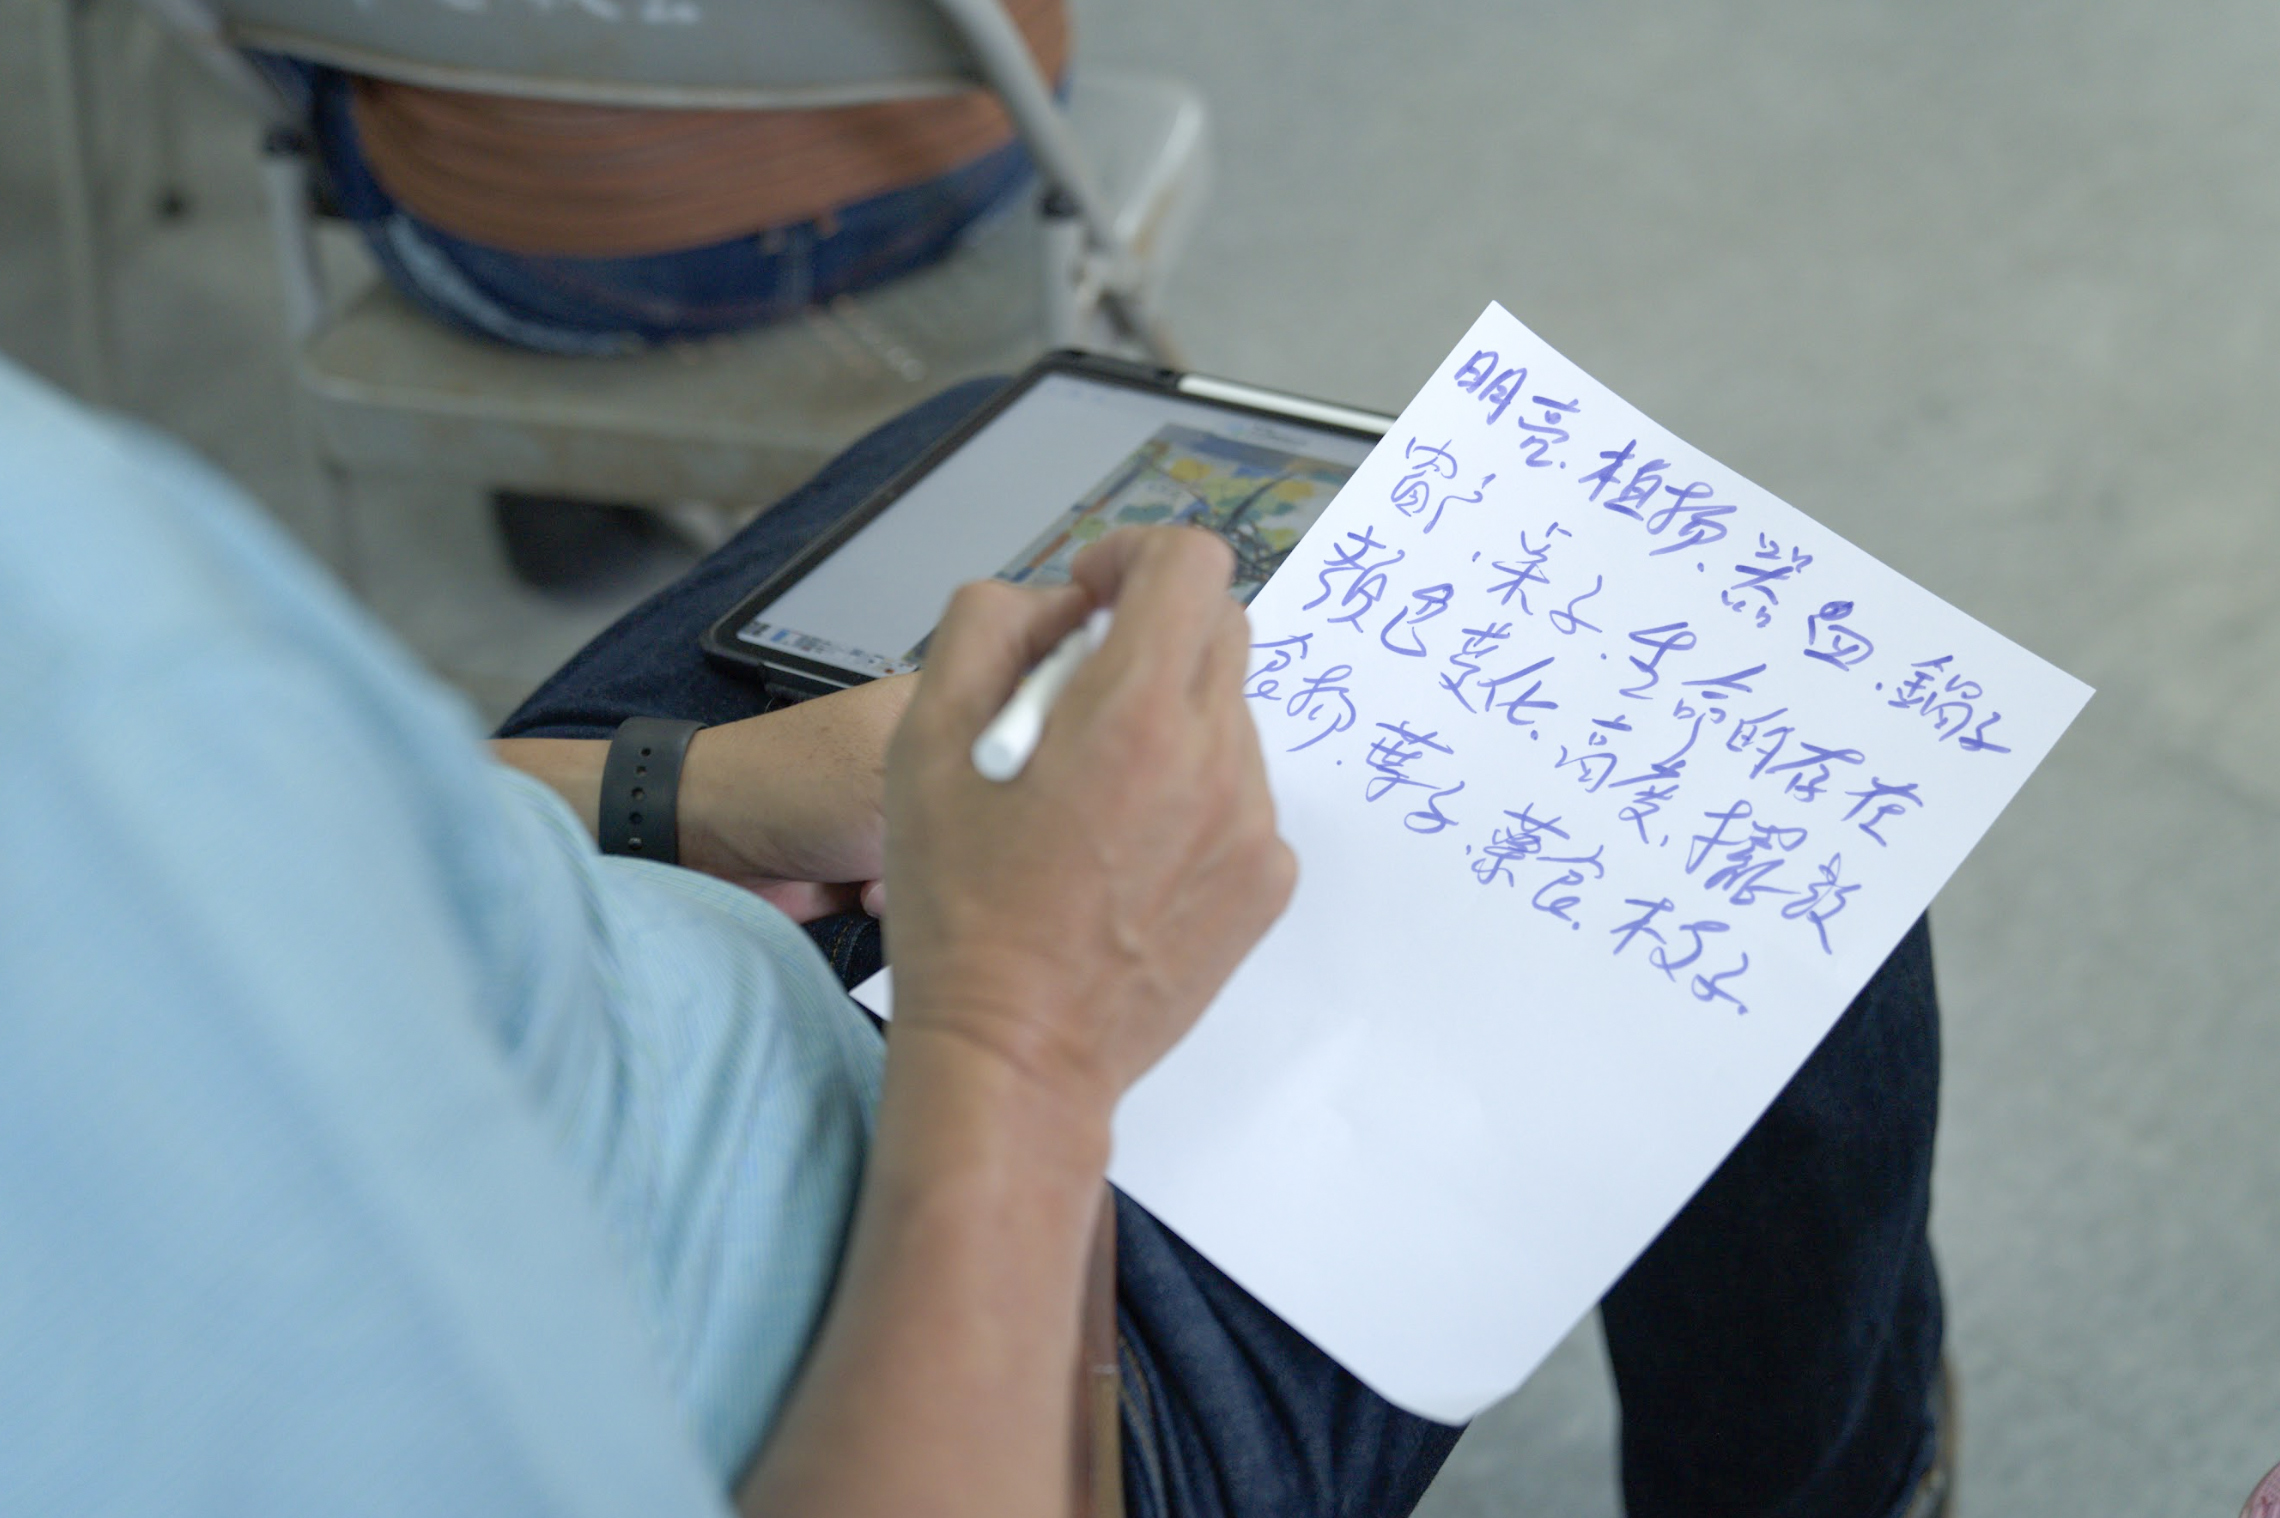 明亮.植物.器皿.鍋子
窗戶.菓子.生命的存在
顏色變化.高度.擺放
食物.葉子.葉食.枝子.